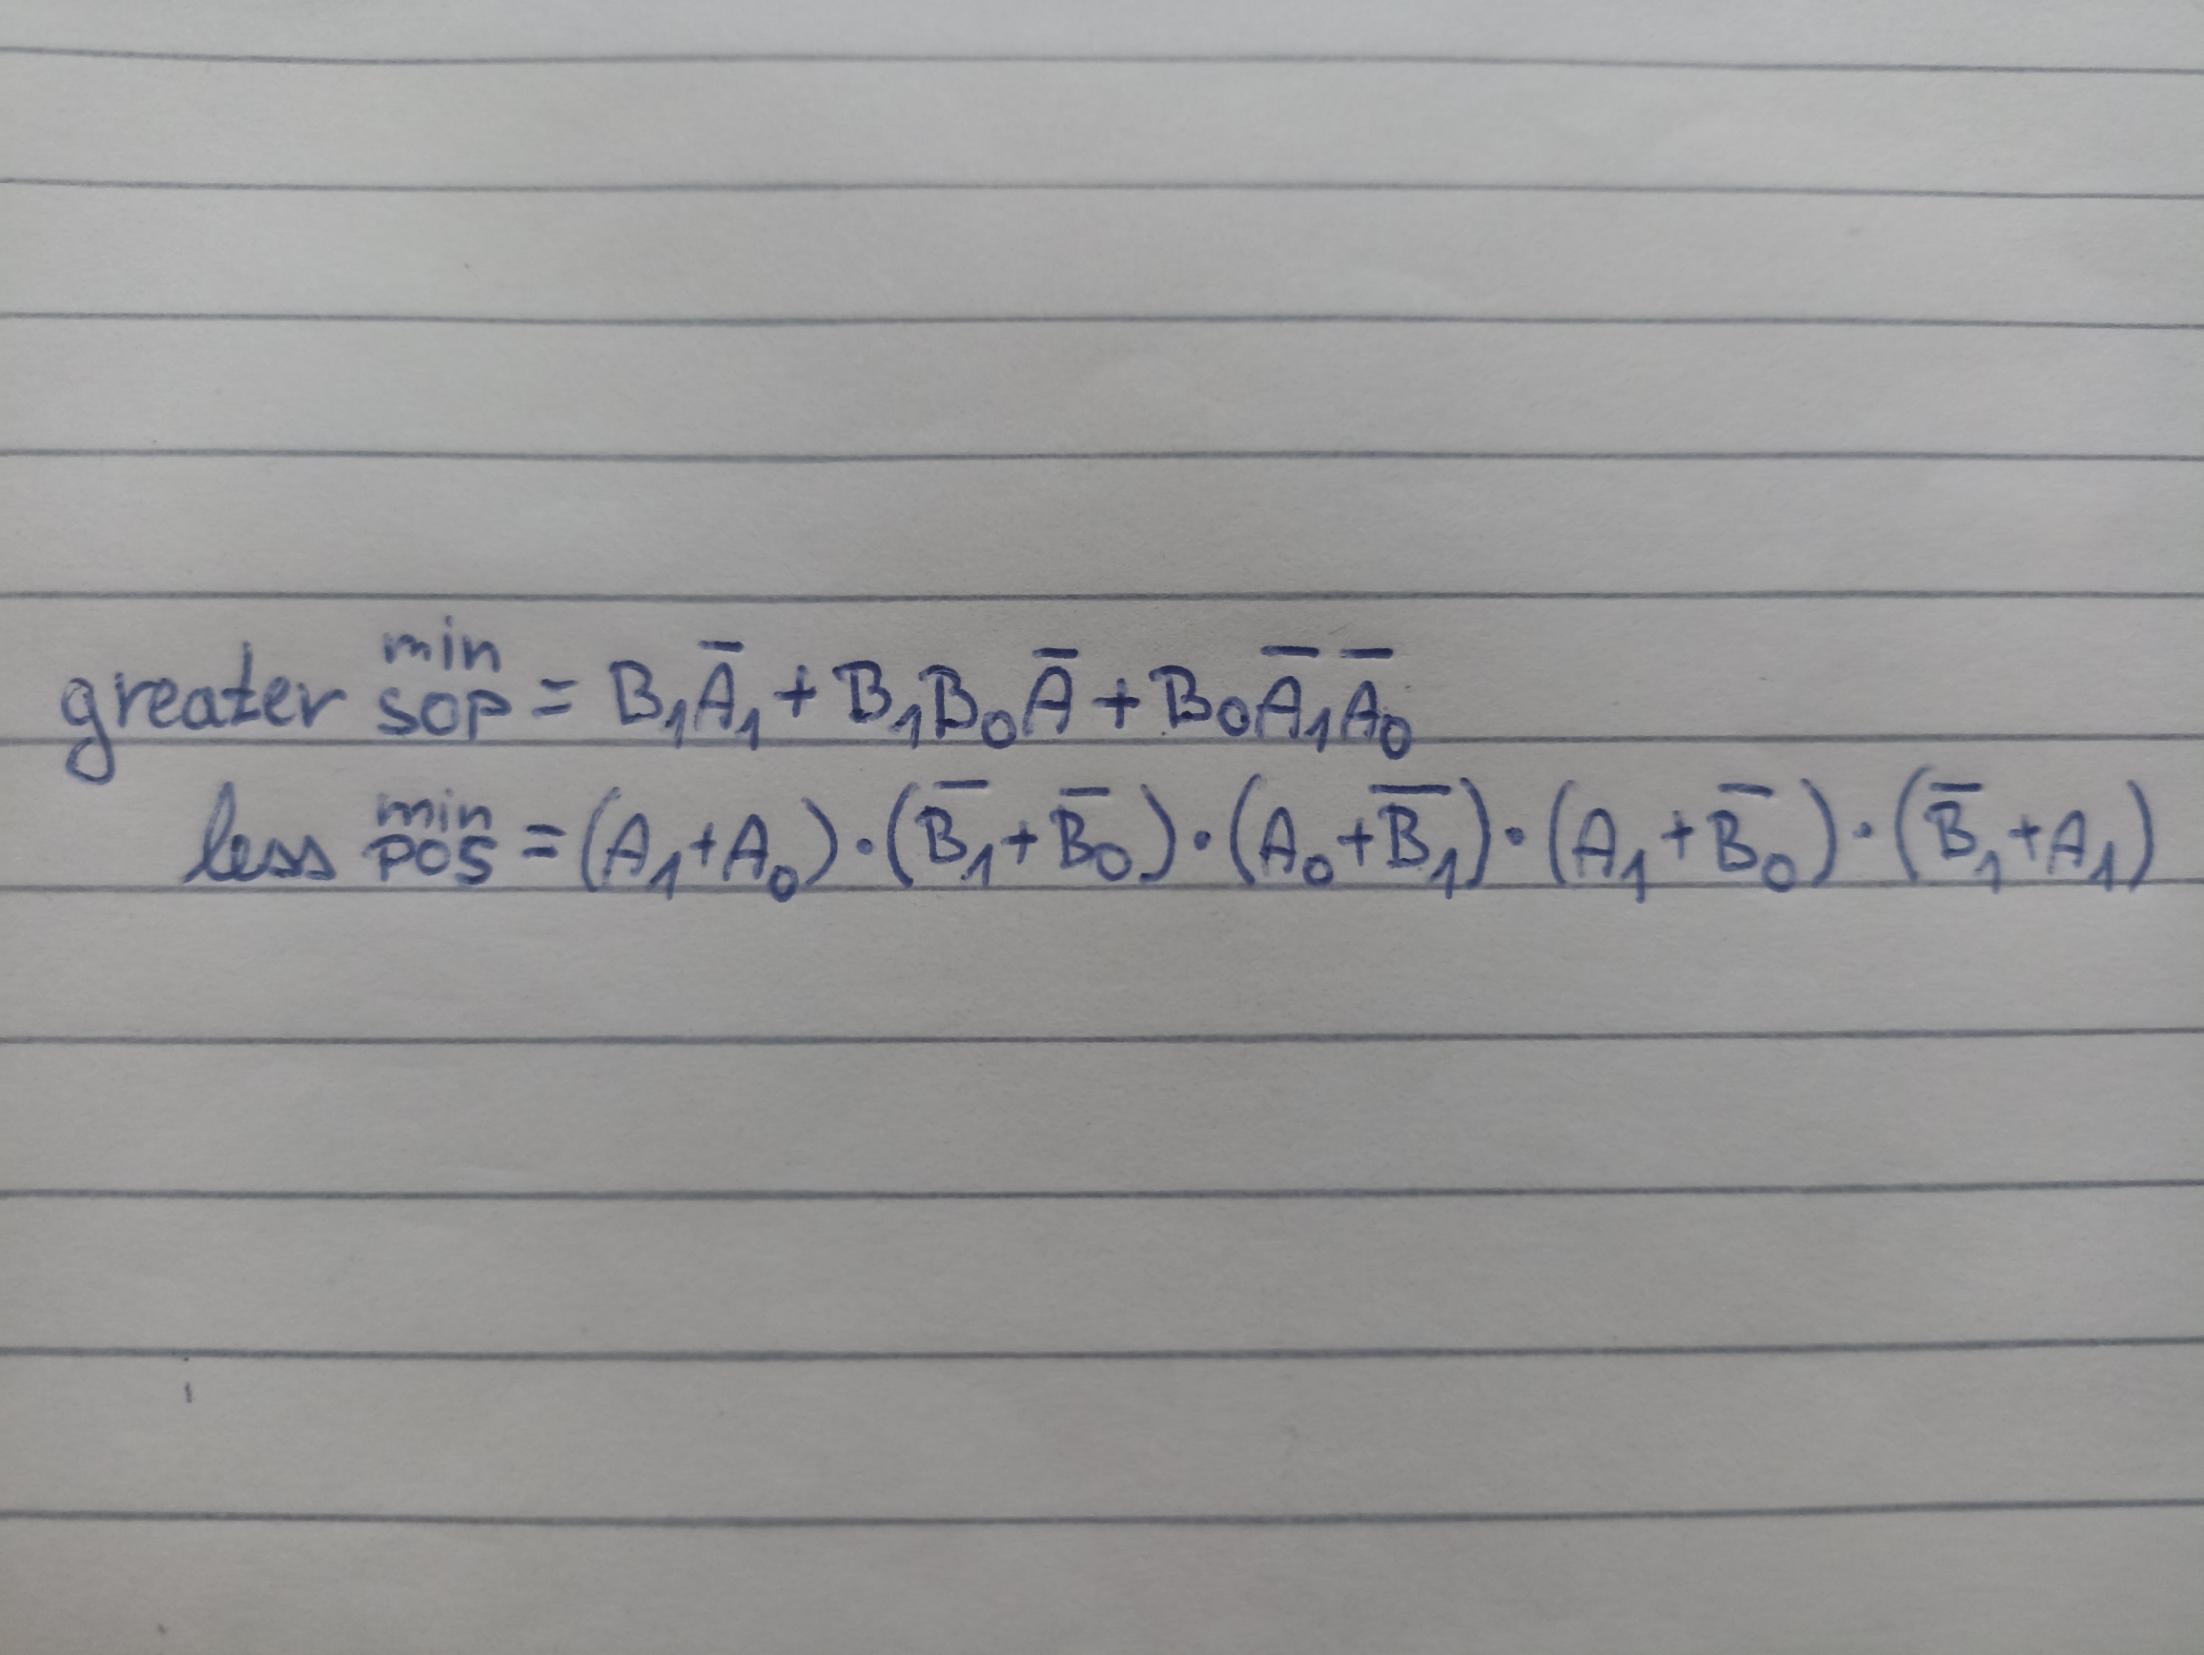 greater min SOP = B₁A̅₁ + B₁B₀A̅ + B₀A̅₁A̅₀
less min POS = (A₁+A₀)·(B̅₁+B̅₀)·(A₀+B̅₁)·(A₁+B̅₀)·(B̅₁+A₁)